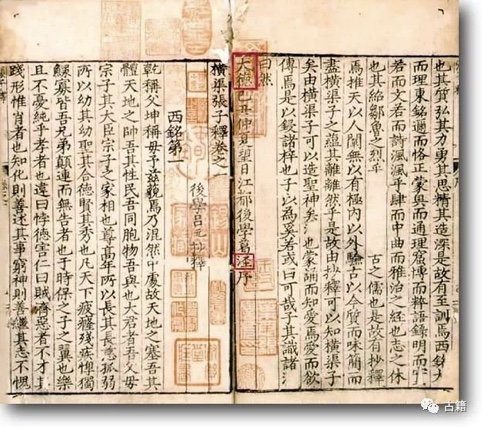 也其質弘其力勇其思精其造深是故有至訓焉西銘
而理東銘通而恪正蒙奧而通理窟博而粹語錄明而
若而文若而詩渢渢乎肆而中曲而雅治之經也志之休
也其紹鄒魯之烈乎 古之儒也是故有抄釋
焉推天以人閒無以有極內以外驗古以今質而味簡而
盡橫渠子之蘊其離離然乎是故由抄釋可以知橫渠子
矣由橫渠子可以造聖神矣 也蒙誦而知愛焉愛而欲
傳焉是以鋟諸梓也子以為奚若或曰可哉子其識諸
曰然
大德 仲夏望日江都後學葛 序
橫渠張子釋卷之一
後學呂 抄釋
西銘第一
乾稱父坤稱母予茲藐焉乃混然中處故天地之塞吾其
體天地之帥吾其性民吾同胞物吾與也大君者吾父母
宗子其大臣宗子之家相也尊高年所以長其長慈孤弱
所以幼其幼聖其合德賢其秀也凡天下疲癃殘疾惸獨
鰥寡皆吾兄弟顛連而無告者也于時保之子之翼也樂
且不憂純乎孝者也違曰悖德害仁曰賊濟惡者不才其
踐形惟肖者也知化則善述其事窮神則善繼其志不愧
古籍